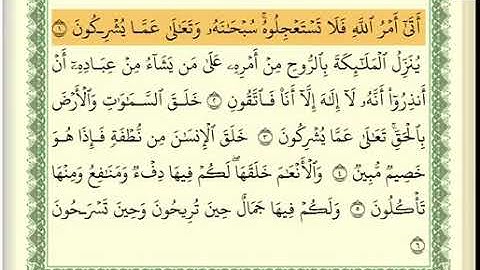 أَتَىٰٓ أَمْرُ ٱللَّهِ فَلَا تَسْتَعْجِلُوهُ ۚ سُبْحَـٰنَهُۥ وَتَعَـٰلَىٰ عَمَّا يُشْرِكُونَ ١
يُنَزِّلُ ٱلْمَلَـٰٓئِكَةَ بِٱلرُّوحِ مِنْ أَمْرِهِۦ عَلَىٰ مَن يَشَآءُ مِنْ عِبَادِهِۦٓ أَنْ
أَنذِرُوٓا۟ أَنَّهُۥ لَآ إِلَـٰهَ إِلَّآ أَنَا۠ فَٱتَّقُونِ ٢ خَلَقَ ٱلسَّمَـٰوَٰتِ وَٱلْأَرْضَ
بِٱلْحَقِّ ۚ تَعَـٰلَىٰ عَمَّا يُشْرِكُونَ ٣ خَلَقَ ٱلْإِنسَـٰنَ مِن نُّطْفَةٍ فَإِذَا هُوَ
خَصِيمٌ مُّبِينٌ ٤ وَٱلْأَنْعَـٰمَ خَلَقَهَا ۗ لَكُمْ فِيهَا دِفْءٌ وَمَنَـٰفِعُ وَمِنْهَا
تَأْكُلُونَ ٥ وَلَكُمْ فِيهَا جَمَالٌ حِينَ تُرِيحُونَ وَحِينَ تَسْرَحُونَ
٦